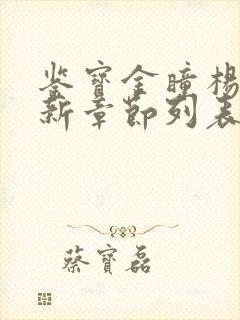 鉴宝金瞳杨
新章节列表
蔡宝磊